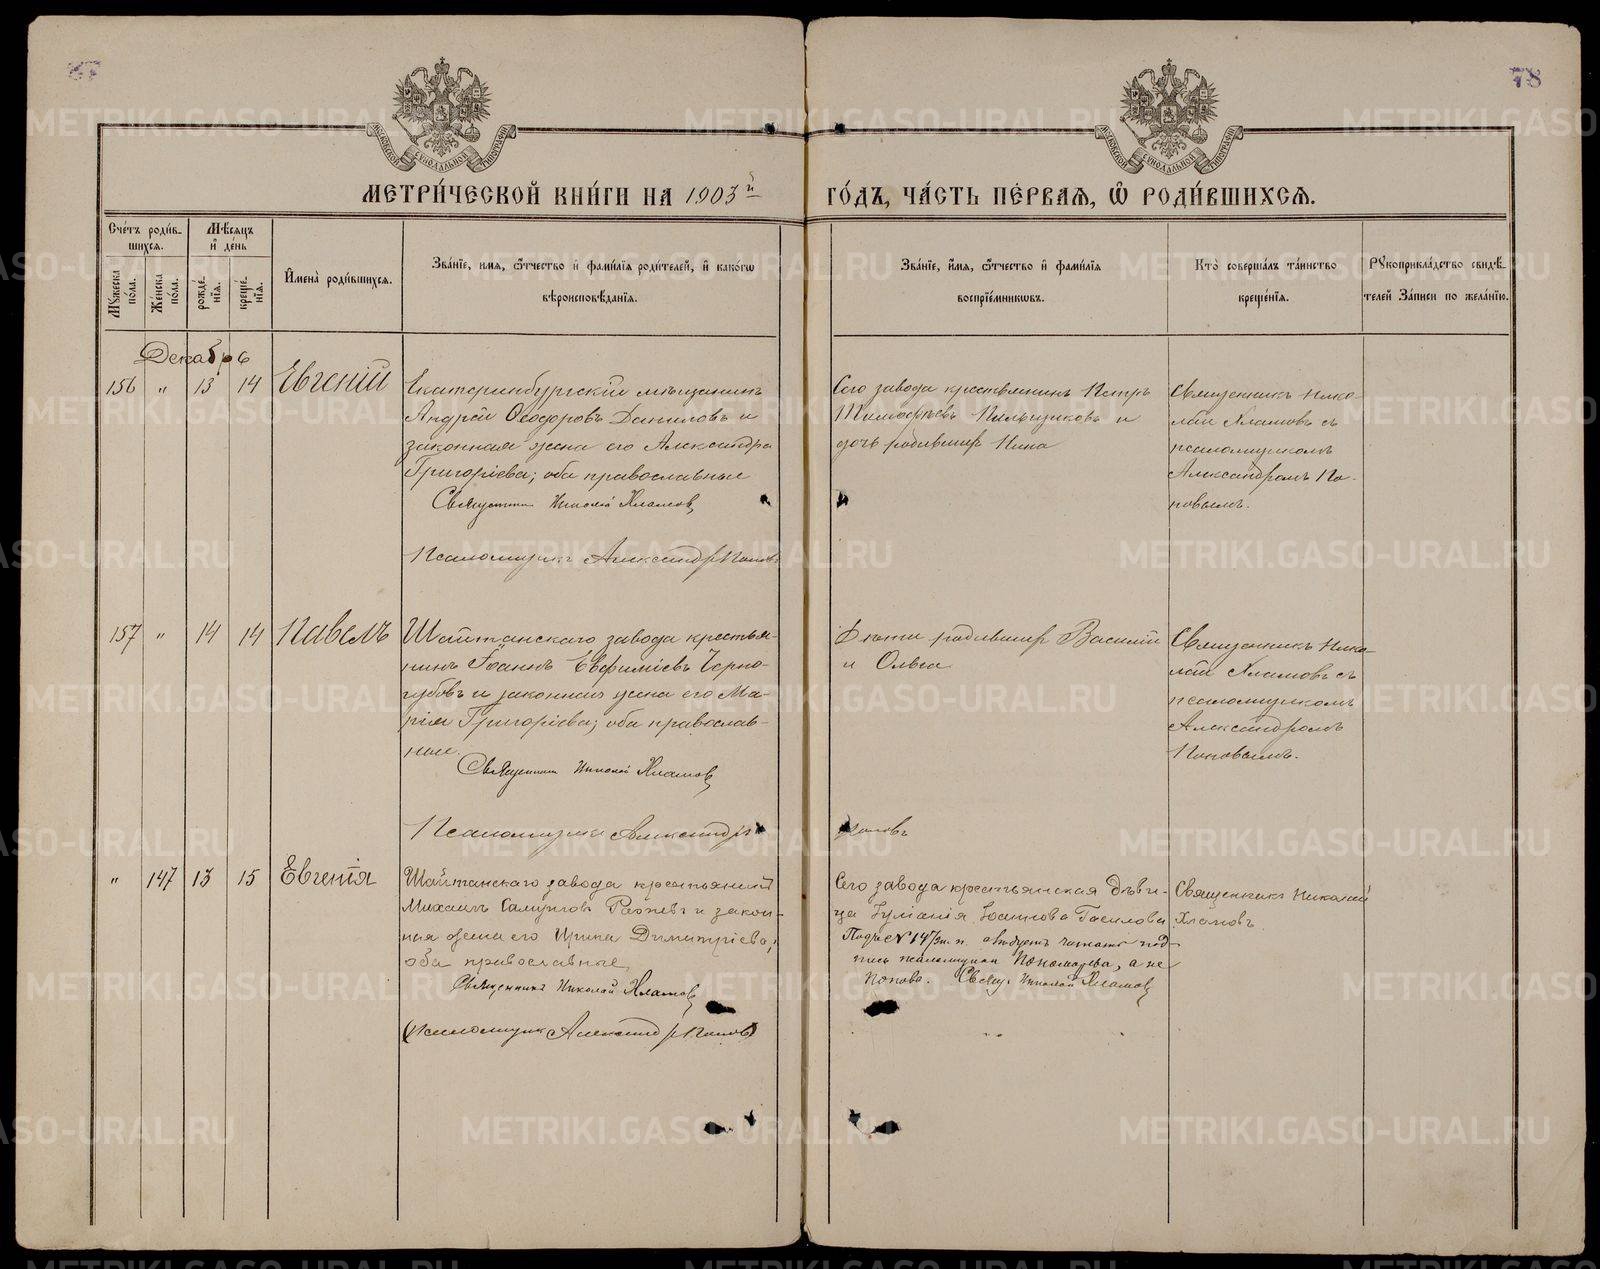 78
МЕТРИ́ЧЕСКОЙ КНИ́ГИ НА 1903й
ГО́ДЪ, ЧА́СТЬ ПЕ́РВАЯ, Ѽ РОДИ́ВШИХСЯ.
Сче́тъ роди́в-
шихся.
Мѣ́сяцъ
и де́нь
Му́жеска по́ла.
Же́нска по́ла.
рожде́-
нїя.
креще́-
нїя.
И́мена роди́вшихся.
Зва́нїе, имя, ѻтчество и фами́лїя роди́телей, и како́гѡ
вѣроисповѣ́данїя.
Зва́нїе, и́мя, ѻтчество и фами́лїя
воспрїе́мниковъ.
Кто̀ соверша́лъ та́инство
креще́нїя.
Рукоприкла́дство свидѣ́-
телей За́писи по жела́нїю.
Декабрь
156 " 13 14 Евгеній
Екатеринбургскій мѣщанинъ
Андрей Ѳеодоровъ Даниловъ и
законная жена его Александра
Григоріева; оба православные
Священникъ Николай Хламовъ
Псаломщикъ Александръ Поповъ
Сего завода крестьянинъ Петръ
Тимофѣевъ Пильщиковъ и
дочь родившаго Нина
Священникъ Нико-
лай Хламовъ съ
псаломщикомъ
Александромъ По-
повымъ.
157 " 14 14 Павелъ
Шайтанскаго завода крестья-
нинъ Іоаннъ Евфиміевъ Черно-
губовъ и законная жена его Ма-
рія Григоріева; оба православ-
ные.
Священникъ Николай Хламовъ
Псаломщикъ Александръ Поповъ
Дѣти родившаго Василій
и Ольга
Священникъ Нико-
лай Хламовъ съ
псаломщикомъ
Александромъ
Поповымъ.
" 147 13 15 Евгенія
Шайтанскаго завода крестьянинъ
Михаилъ и закон-
ная жена его Ирина Димитріева;
оба православные
Священникъ Николай Хламовъ
Псаломщикъ Александръ Поповъ
Сего завода крестьянская дѣви-
ца Іуліанія Іоаннова
Подъ № 147 ж. п. слѣдуетъ читать под-
пись псаломщика Пономарева, а не
Попова. Свящ. Николай Хламовъ
Священникъ Николай
Хламовъ
METRIKI.GASO-URAL.RU